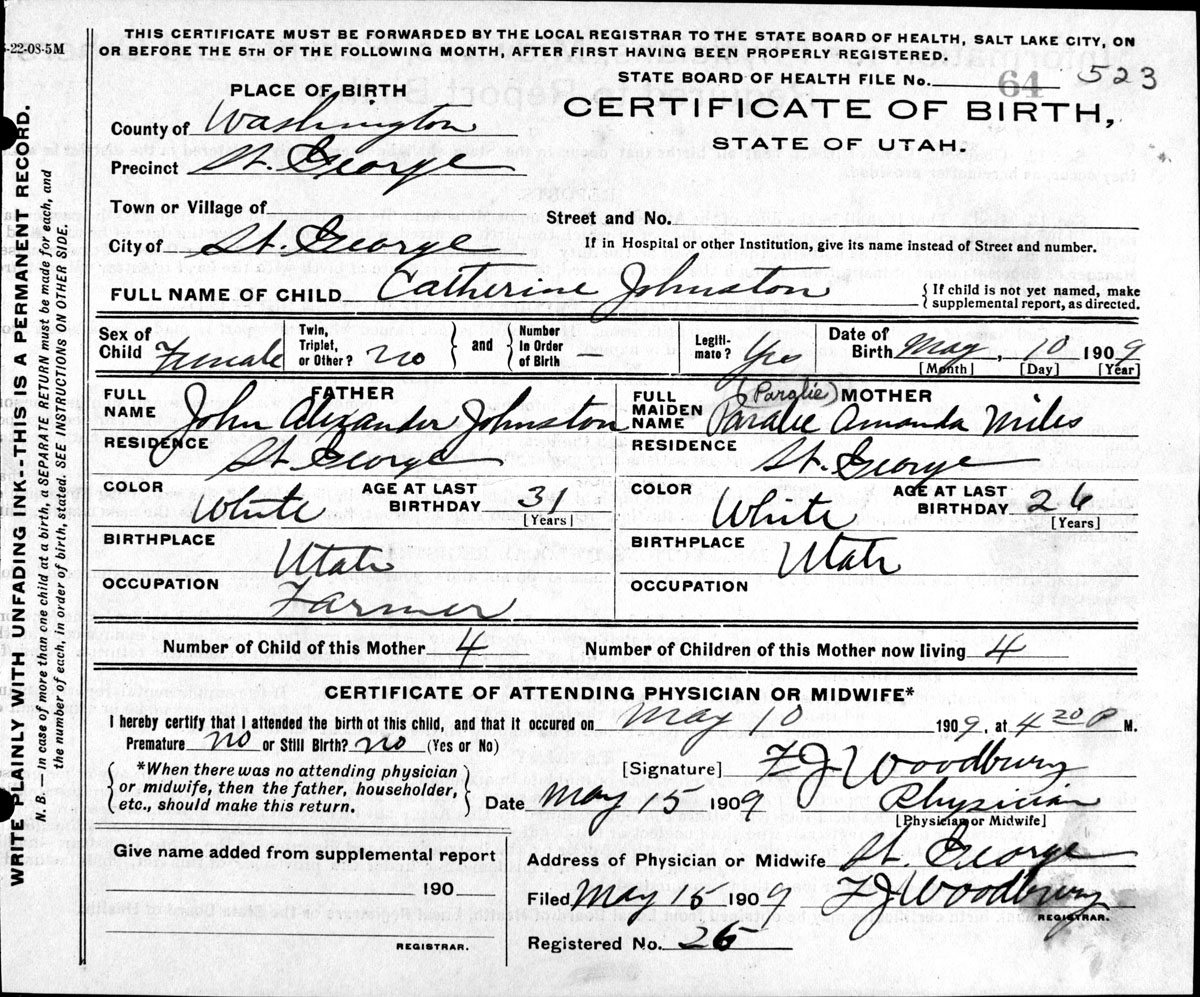 5-22-08-5M
THIS CERTIFICATE MUST BE FORWARDED BY THE LOCAL REGISTRAR TO THE STATE BOARD OF HEALTH, SALT LAKE CITY, ON
OR BEFORE THE 5TH OF THE FOLLOWING MONTH, AFTER FIRST HAVING BEEN PROPERLY REGISTERED.
STATE BOARD OF HEALTH FILE No. 64 523
PLACE OF BIRTH
CERTIFICATE OF BIRTH,
STATE OF UTAH.
County of Washington
Precinct St. George
Town or Village of
Street and No.
City of St. George
If in Hospital or other Institution, give its name instead of Street and number.
FULL NAME OF CHILD Catherine Johnston
{ If child is not yet named, make
supplemental report, as directed.
Sex of Child Female
Twin, Triplet, or Other? no
} and {
Number in Order of Birth —
Legiti- mate? Yes
Date of Birth May, 10 1909
[Month] [Day] [Year]
FATHER
FULL NAME John Alexander Johnston
RESIDENCE St George
COLOR White
AGE AT LAST BIRTHDAY 31
[Years]
BIRTHPLACE Utah
OCCUPATION Farmer
(Paralie) MOTHER
FULL MAIDEN NAME Paralie Amanda Miles
RESIDENCE St. George
COLOR White
AGE AT LAST BIRTHDAY 26
[Years]
BIRTHPLACE Utah
OCCUPATION
Number of Child of this Mother 4
Number of Children of this Mother now living 4
CERTIFICATE OF ATTENDING PHYSICIAN OR MIDWIFE*
I hereby certify that I attended the birth of this child, and that it occured on May 10 1909, at 4 20 P M.
Premature no or Still Birth? no (Yes or No)
{ *When there was no attending physician
or midwife, then the father, householder,
etc., should make this return. }
[Signature] F J Woodbury
Date May 15 1909
Physician
[Physician or Midwife]
Give name added from supplemental report
190
REGISTRAR.
Address of Physician or Midwife St. George
Filed May 15 1909 F J Woodbury
REGISTRAR.
Registered No. 26
WRITE PLAINLY WITH UNFADING INK--THIS IS A PERMANENT RECORD.
N. B.—In case of more than one child at a birth, a SEPARATE RETURN must be made for each, and
the number of each, in order of birth, stated. SEE INSTRUCTIONS ON OTHER SIDE.